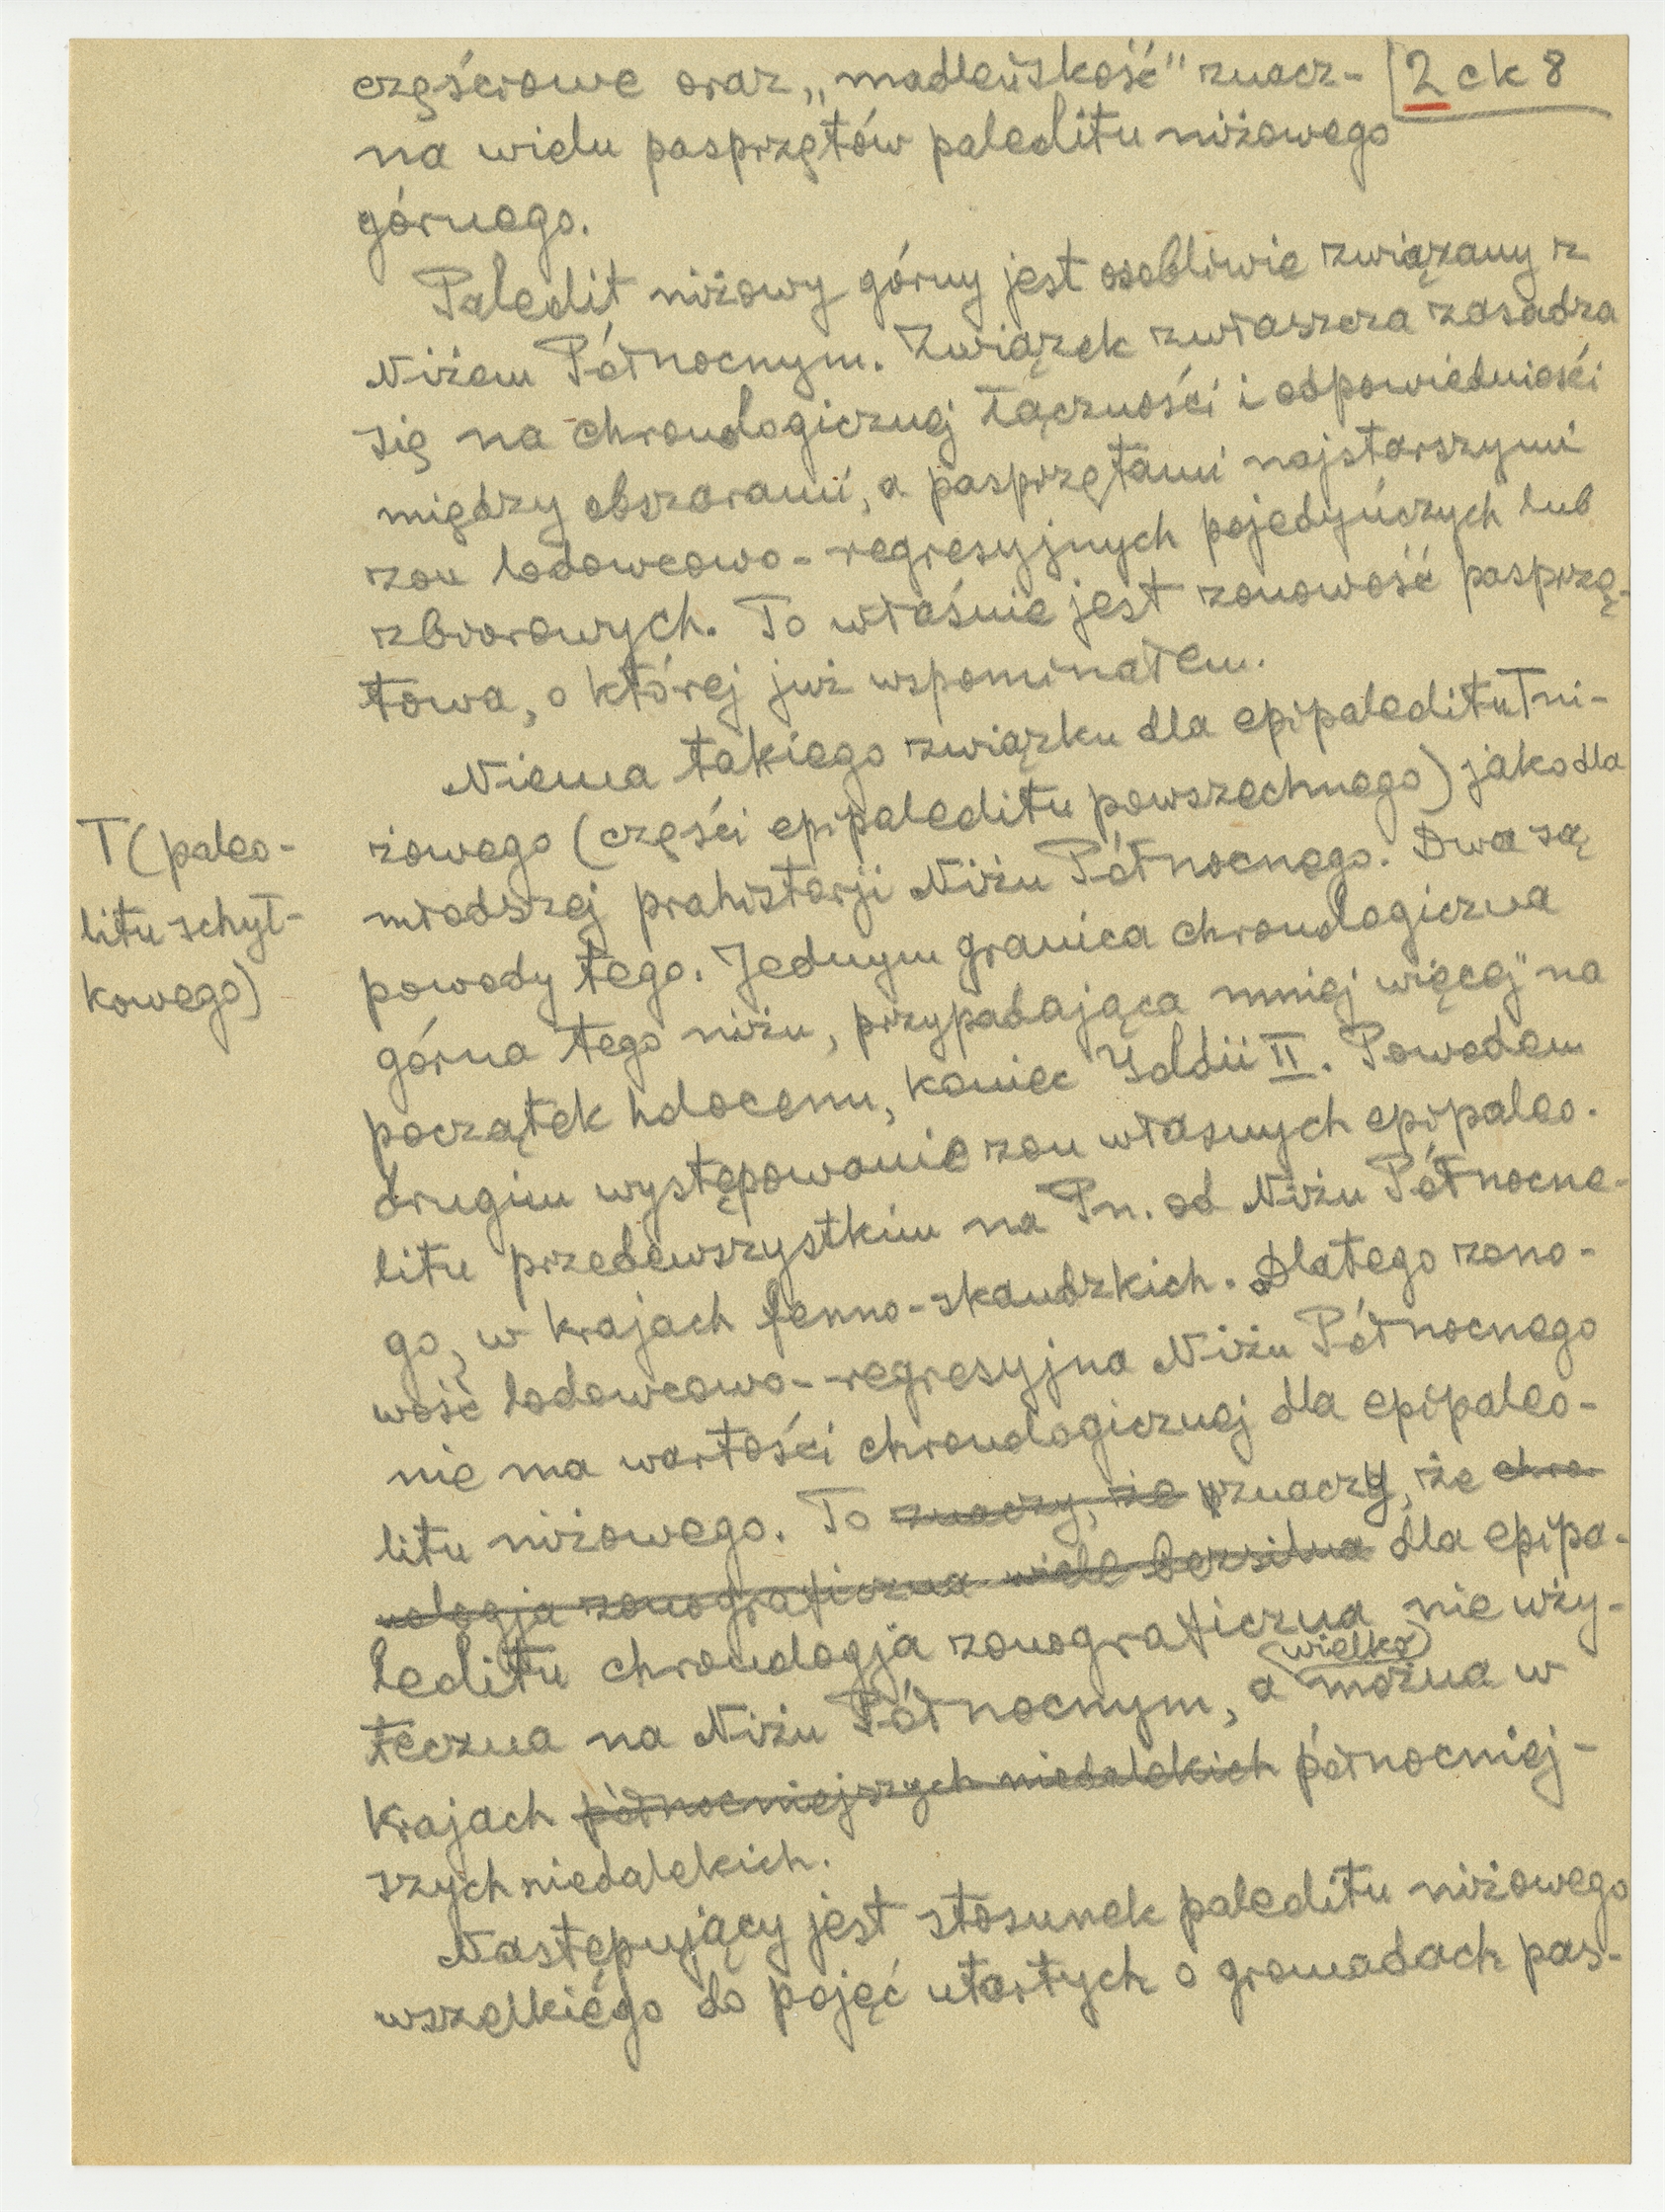 częściowe oraz „madleńskość" znacz-
2 ck 8
na wielu pasprzętów paleolitu niżowego
górnego.
Paleolit niżowy górny jest osobliwie związany z
Niżem Północnym. Związek zwłaszcza zasadza
się na chronologicznej łączności i odpowiedniości
między obszarami, a pasprzętami najstarszymi
zon lodowcowo-regresyjnych pojedyńczych lub
zbiorowych. To właśnie jest zonowość pasprzę-
towa, o której już wspominałem.
Niema takiego związku dla epipaleolitu T ni-
żowego (części epipaleolitu powszechnego) jako dla
młodszej prahistorji Niżu Północnego. Dwa są
powody tego. Jednym granica chronologiczna
górna tego niżu, przypadająca mniej więcej" na
początek holocenu, koniec Yoldii II. Powodem
drugim występowanie zon własnych epipaleo-
litu przedewszystkim na Pn. od Niżu Północne-
go, w krajach fenno-skandzkich. Dlatego zono-
wość lodowcowo-regresyjna Niżu Północnego
nie ma wartości chronologicznej dla epipaleo-
litu niżowego. To znaczy, że znaczy, że chro-
nologja zonograficzna wiele bezsilna dla epipa-
leolitu chronologja zonograficzna nie uży-
teczna na Niżu Północnym, a (wielko) można w
krajach północniejszych niedalekich północniej-
szych niedalekich.
Następujący jest stosunek paleolitu niżowego
wszelkiego do pojęć utartych o gromadach pas-
T (paleo-
litu schył-
kowego)